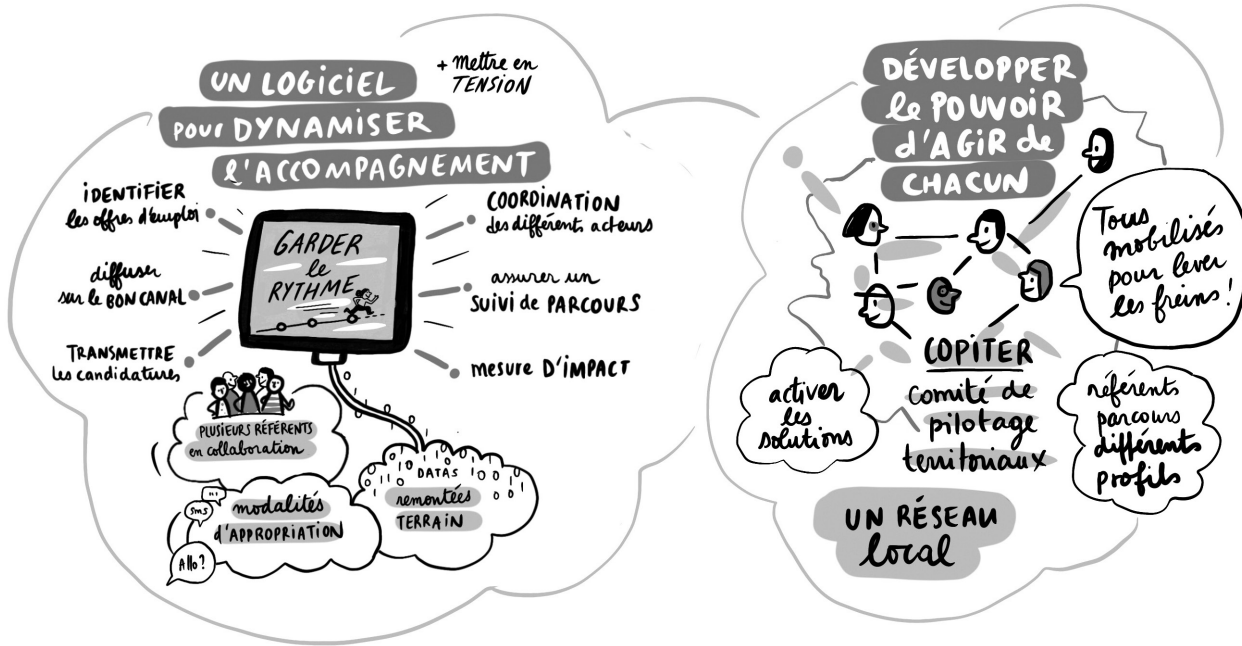 UN LOGiCiEL
pour DYNAMiSER
l'ACCOMPAGNEMENT
+ mettre en
TENSION
iDENTiFiER
les offres d'emploi
diffuser
sur le BON CANAL
TRANSMETTRE
les candidatures
GARDER
le
RYTHME
COORDINATION
des différents acteurs
assurer un
SUIVI de PARCOURS
mesure D'IMPACT
PLUSIEURS RÉFÉRENTS
en collaboration
sms
modalités
d'APPROPRIATION
Allo?
DATAS
remontées
TERRAiN
DÉVELOPPER
le POUVOiR
d'AGiR de
CHACUN
Tous
mobilisés
pour lever
les freins!
COPITER
comité de
pilotage
territoriaux
activer
les
solutions
référents
parcours
différents
profils
UN RÉSEAU
local